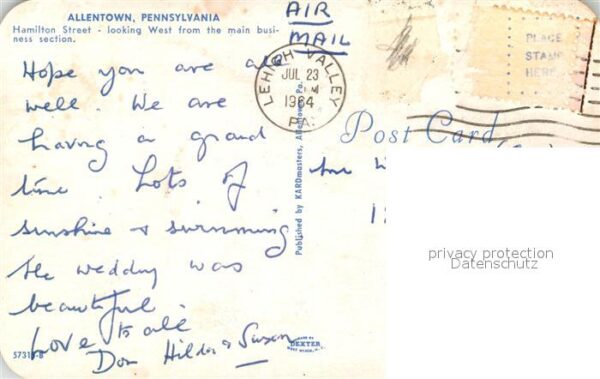 ALLENTOWN, PENNSYLVANIA
Hamilton Street - looking West from the main busi-
ness section.
AIR
MAIL
PLACE
STAMP
HERE
LEHIGH VALLEY
JUL 23
PM
1964
PA.
Post Card
Hope you are all
well. We are
having a grand
time. Lots of
sunshine & swimming
the wedding was
beautiful.
Love to all
Don Hilda & Susan
Published by KARDmasters, Allentown, Pa.
57318-B
MADE BY
DEXTER
WEST NYACK, N.Y.
privacy protection
Datenschutz